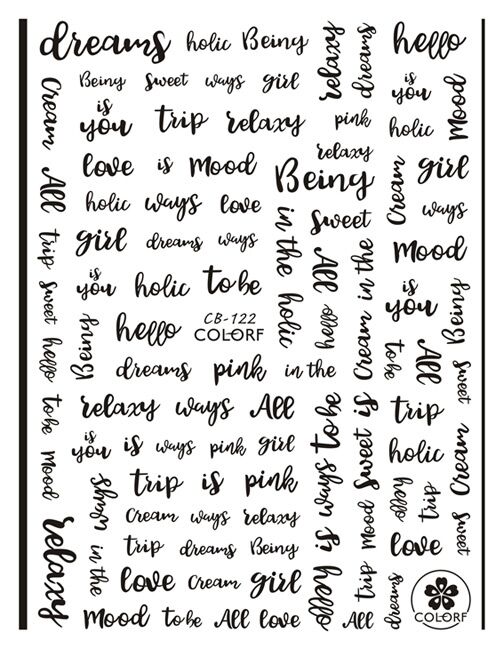 dreams holic Being
relaxy
dreams
hello
Being sweet ways girl
is you
Mood
Cream
is you trip relaxy
pink
holic
relaxy
love is Mood
Being
Cream
girl
All
holic ways love
sweet
ways
girl dreams ways
in the holic
All
Cream in the
Mood
trip
is you holic to be
is you
Being
sweet
Being
hello
CB-122
COLORF
hello
to be
All
hello
dreams pink in the
sweet
relaxy ways All
is ways to be
sweet is
trip
to be
is you is ways pink girl
holic
Cream
mood
ways
trip is pink
hello
trip
Cream ways relaxy
mood
love
sweet
relaxy
in the
trip dreams Being
love Cream girl
hello
trip
dreams
COLORF
Mood to be All love
All